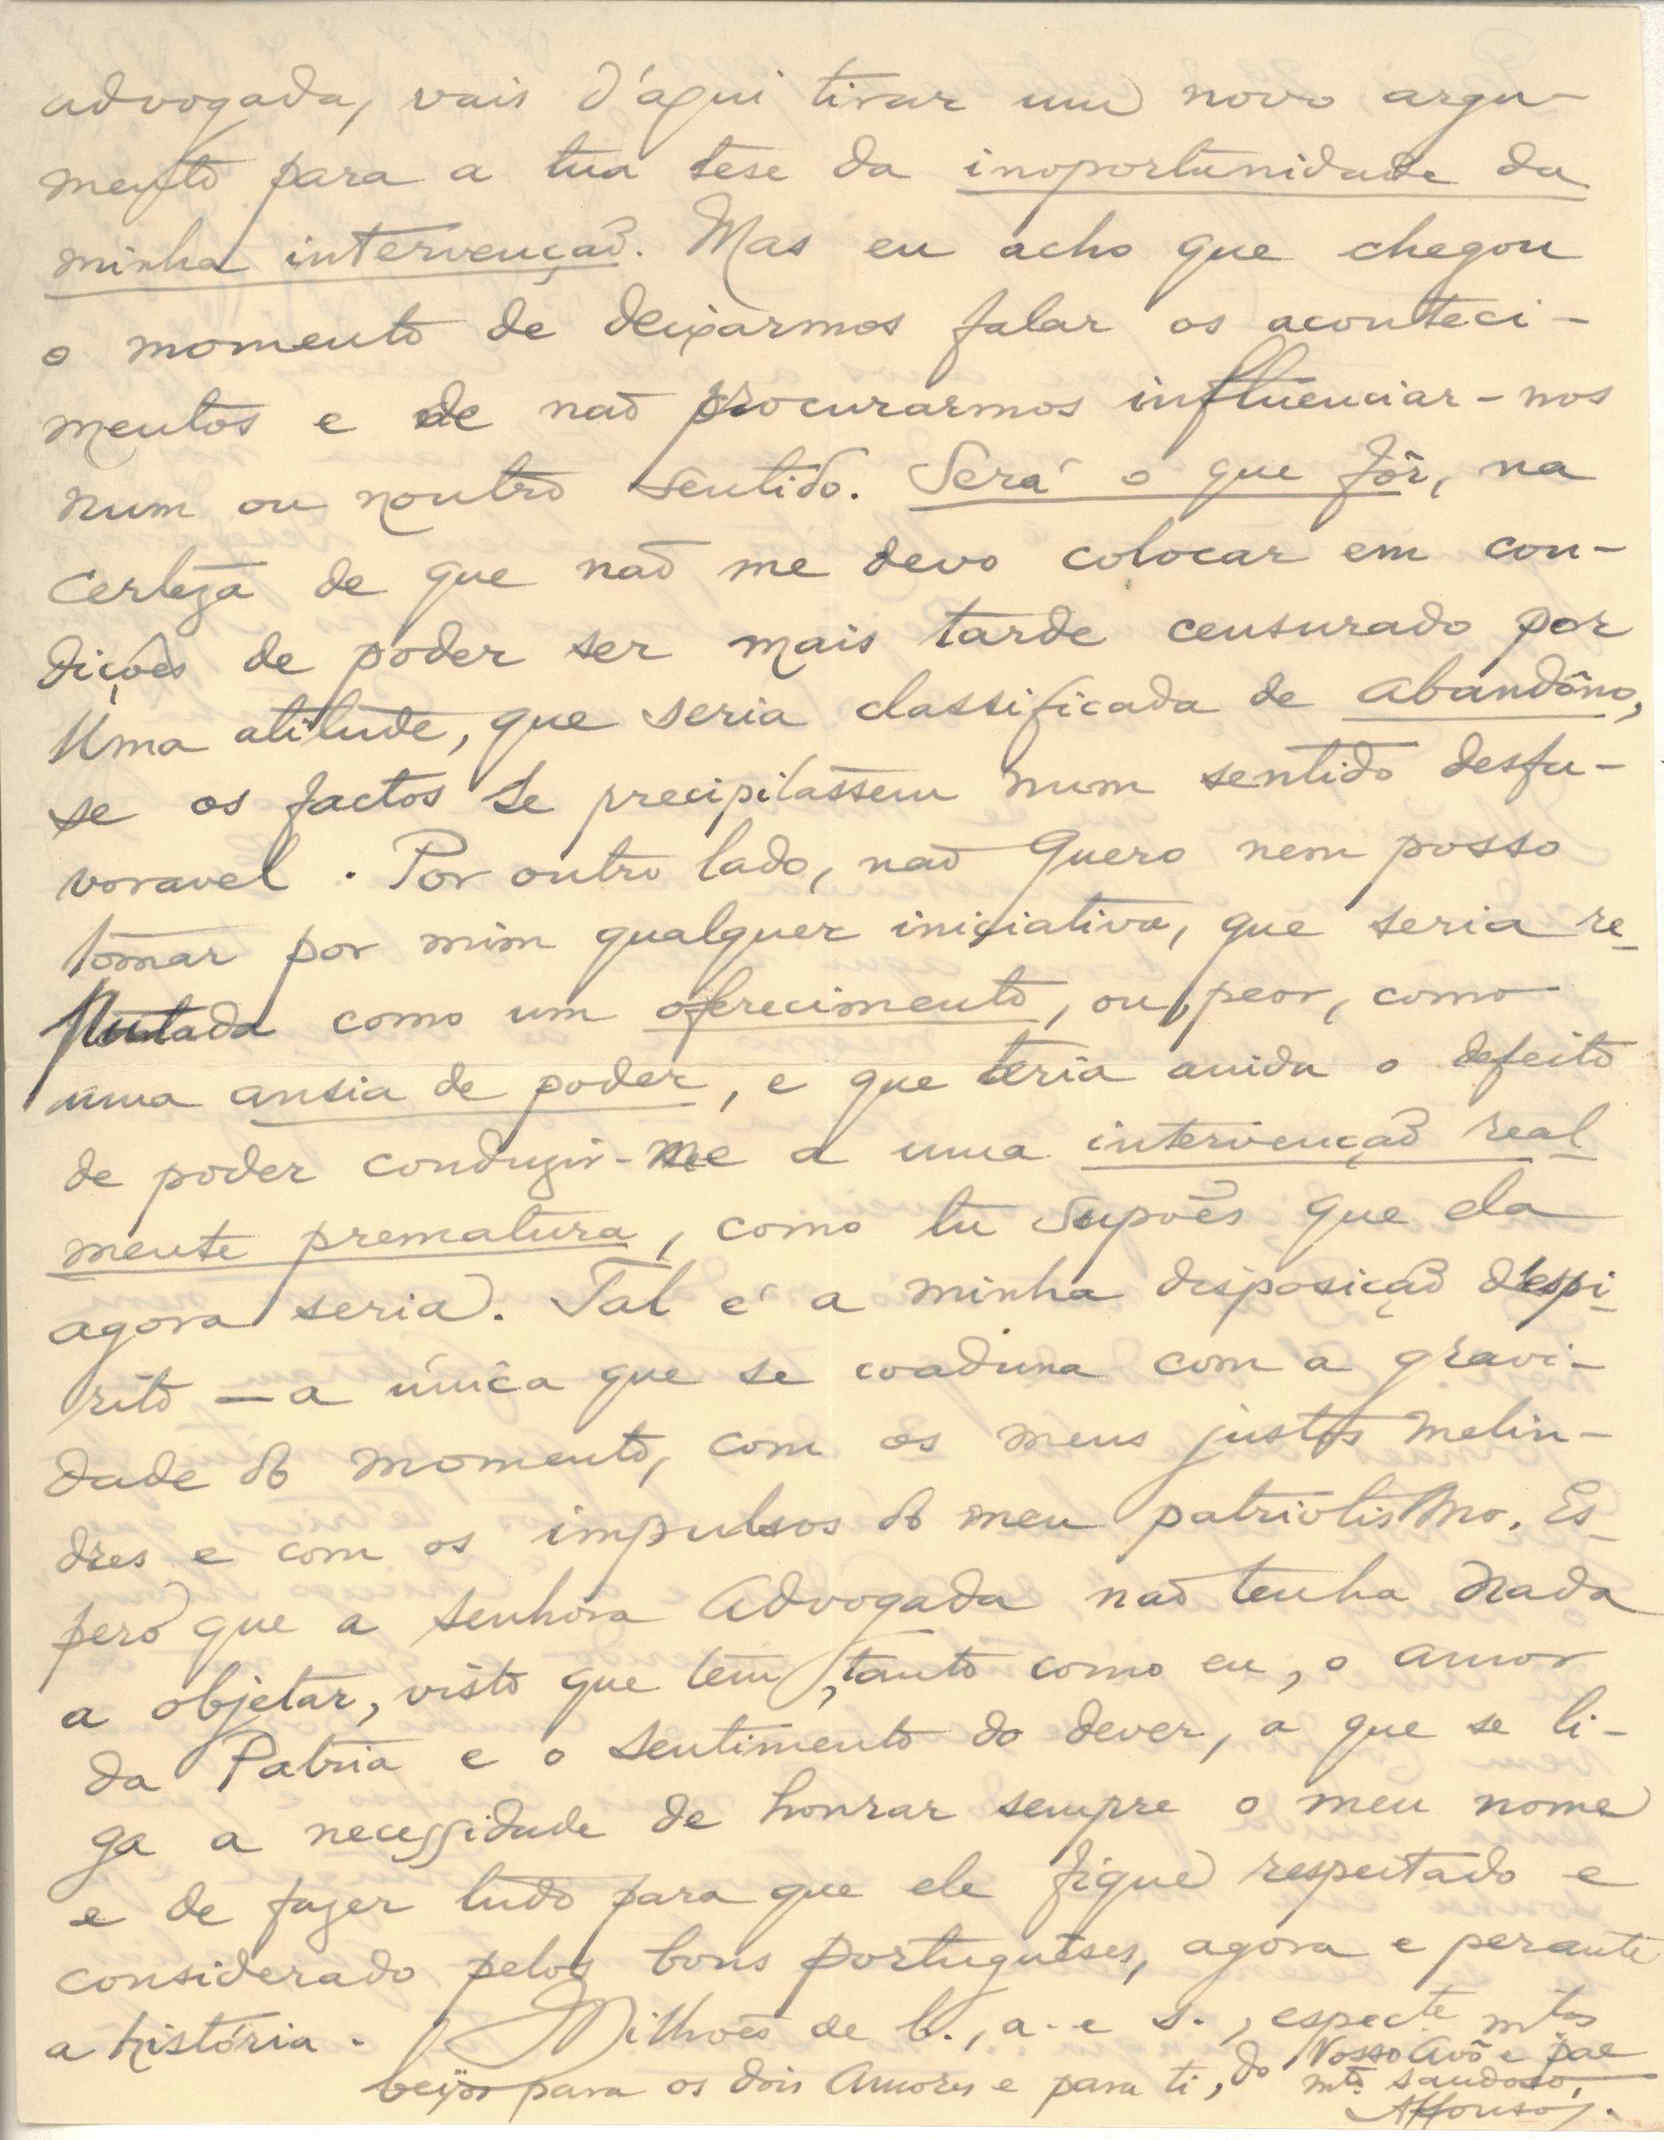 advogada, vais d'aqui tirar um novo argu-
mento para a tua tese da inoportunidade da
minha intervenção. Mas eu acho que chegou
o momento de deixarmos falar os aconteci-
mentos e de não procurarmos influenciar-nos
num ou noutro sentido. Será o que fôr, na
certeza de que não me devo colocar em con-
dições de poder ser mais tarde censurado por
uma atitude, que seria classificada de abandôno,
se os factos se precipitassem num sentido desfa-
voravel. Por outro lado, não quero nem posso
tomar por mim qualquer iniciativa, que seria re-
putada como um oferecimento, ou, peor, como
uma ansia de poder, e que teria ainda o defeito
de poder conduzir-me a uma intervenção real-
mente prematura, como tu supões que ela
agora seria. Tal é a minha disposição d'espi-
rito — a única que se coaduna com a gravi-
dade do momento, com os meus justos melin-
dres e com os impulsos do meu patriotismo. Es-
pero que a senhora Advogada não tenha nada
a objetar, visto que tem, tanto como eu, o amor
da Patria e o sentimento do dever, a que se li-
ga a necessidade de honrar sempre o meu nome
e de fazer tudo para que ele fique respeitado e
considerado pelos bons portuguêses, agora e perante
a história. Milhões de b., a. e s., especte mtos
beijos para os dois Amores e para ti, do Vosso Avô e pae
mto saudoso,
Affonso.